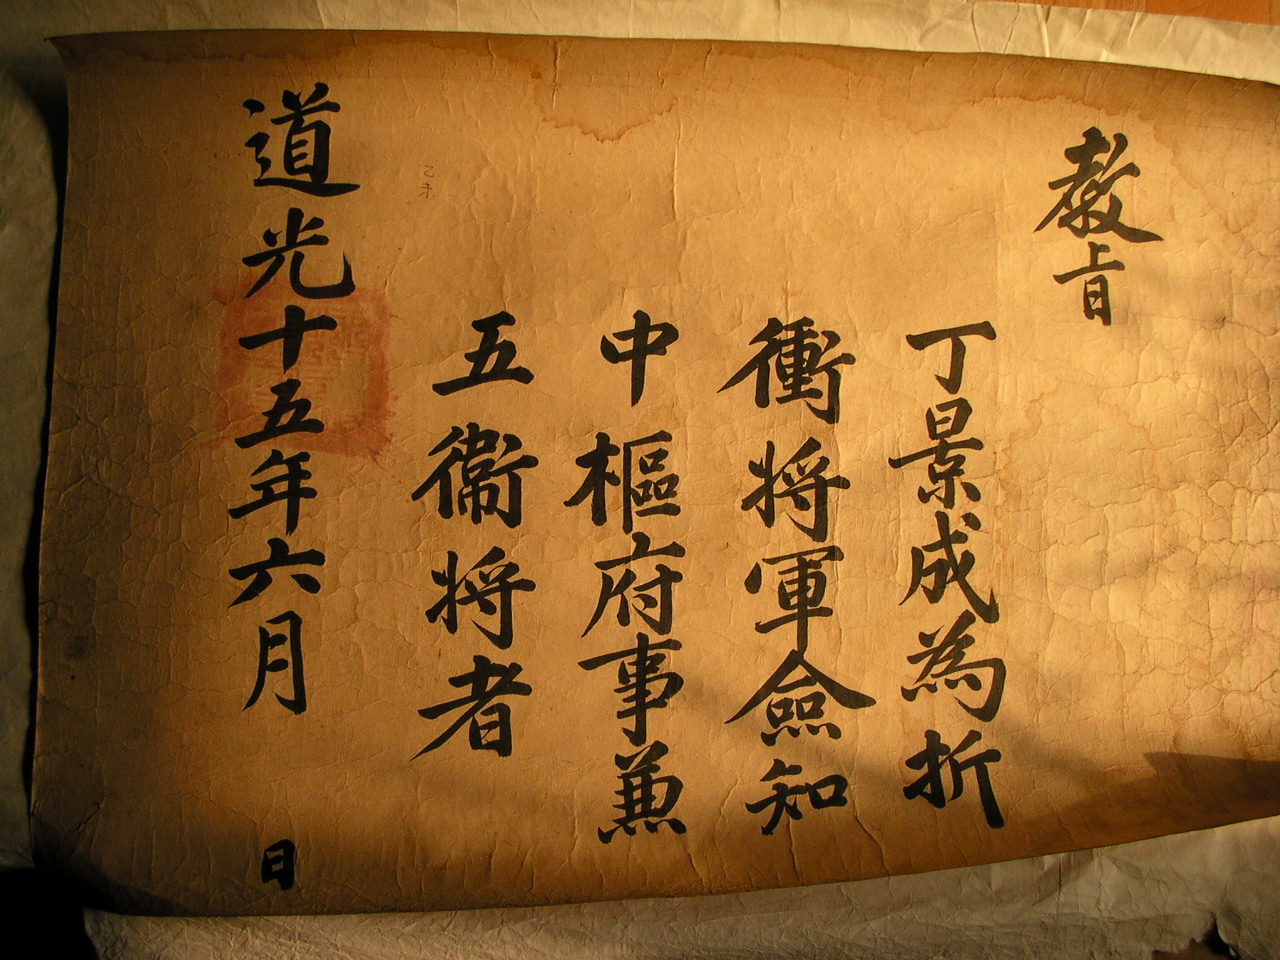 教旨
丁景成為折
衝將軍僉知
中樞府事兼
五衛將者
乙未
道光十五年六月 日